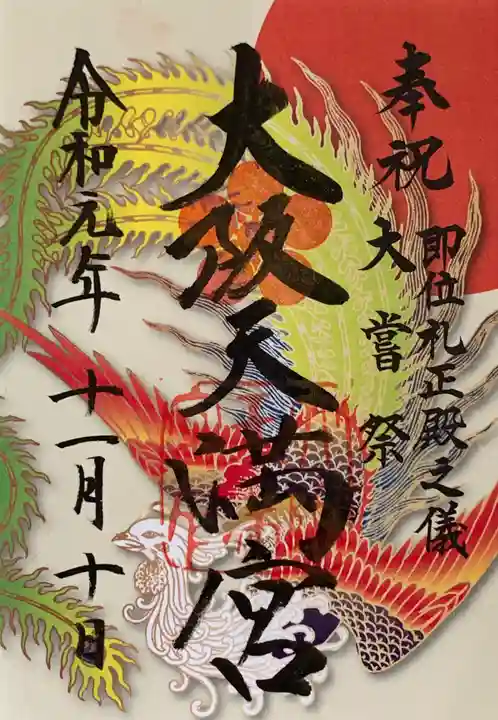 奉祝
即位礼正殿之儀
大嘗祭
大阪天満宮
令和元年 十一月 十日